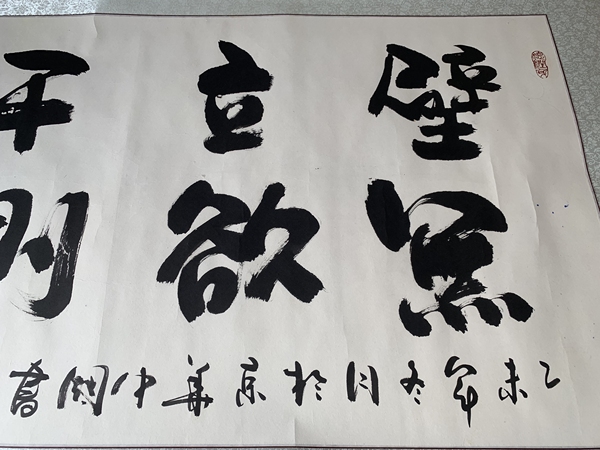 壁立千
無欲
乙未年冬月於京華中國